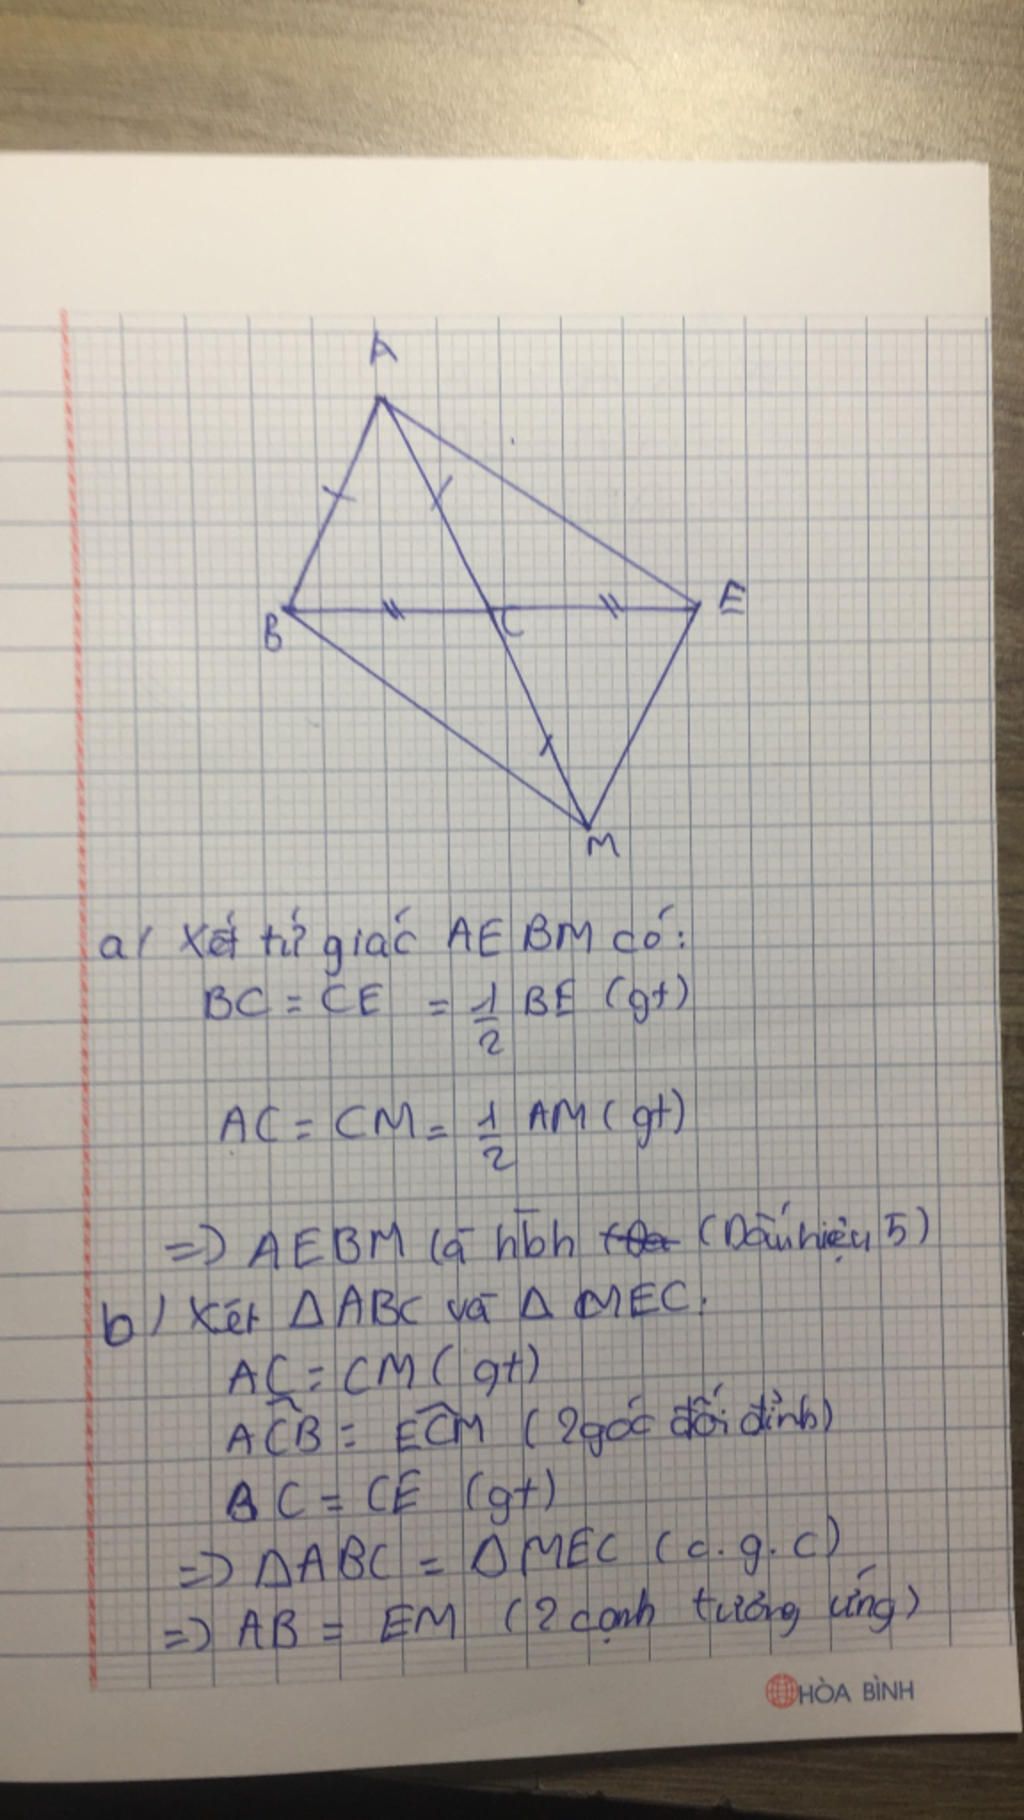 A
B
C
E
M
a/ Xét tứ giác AEBM có:
BC = CE = 1/2 BE (gt)
AC = CM = 1/2 AM (gt)
=> AEBM là hbh (Dấu hiệu 5)
b/ Xét ΔABC và Δ MEC:
AC = CM (gt)
AĈB = EĈM (2 góc đối đỉnh)
BC = CE (gt)
=> ΔABC = ΔMEC (c.g.c)
=> AB = EM (2 cạnh tương ứng)
HÒA BÌNH